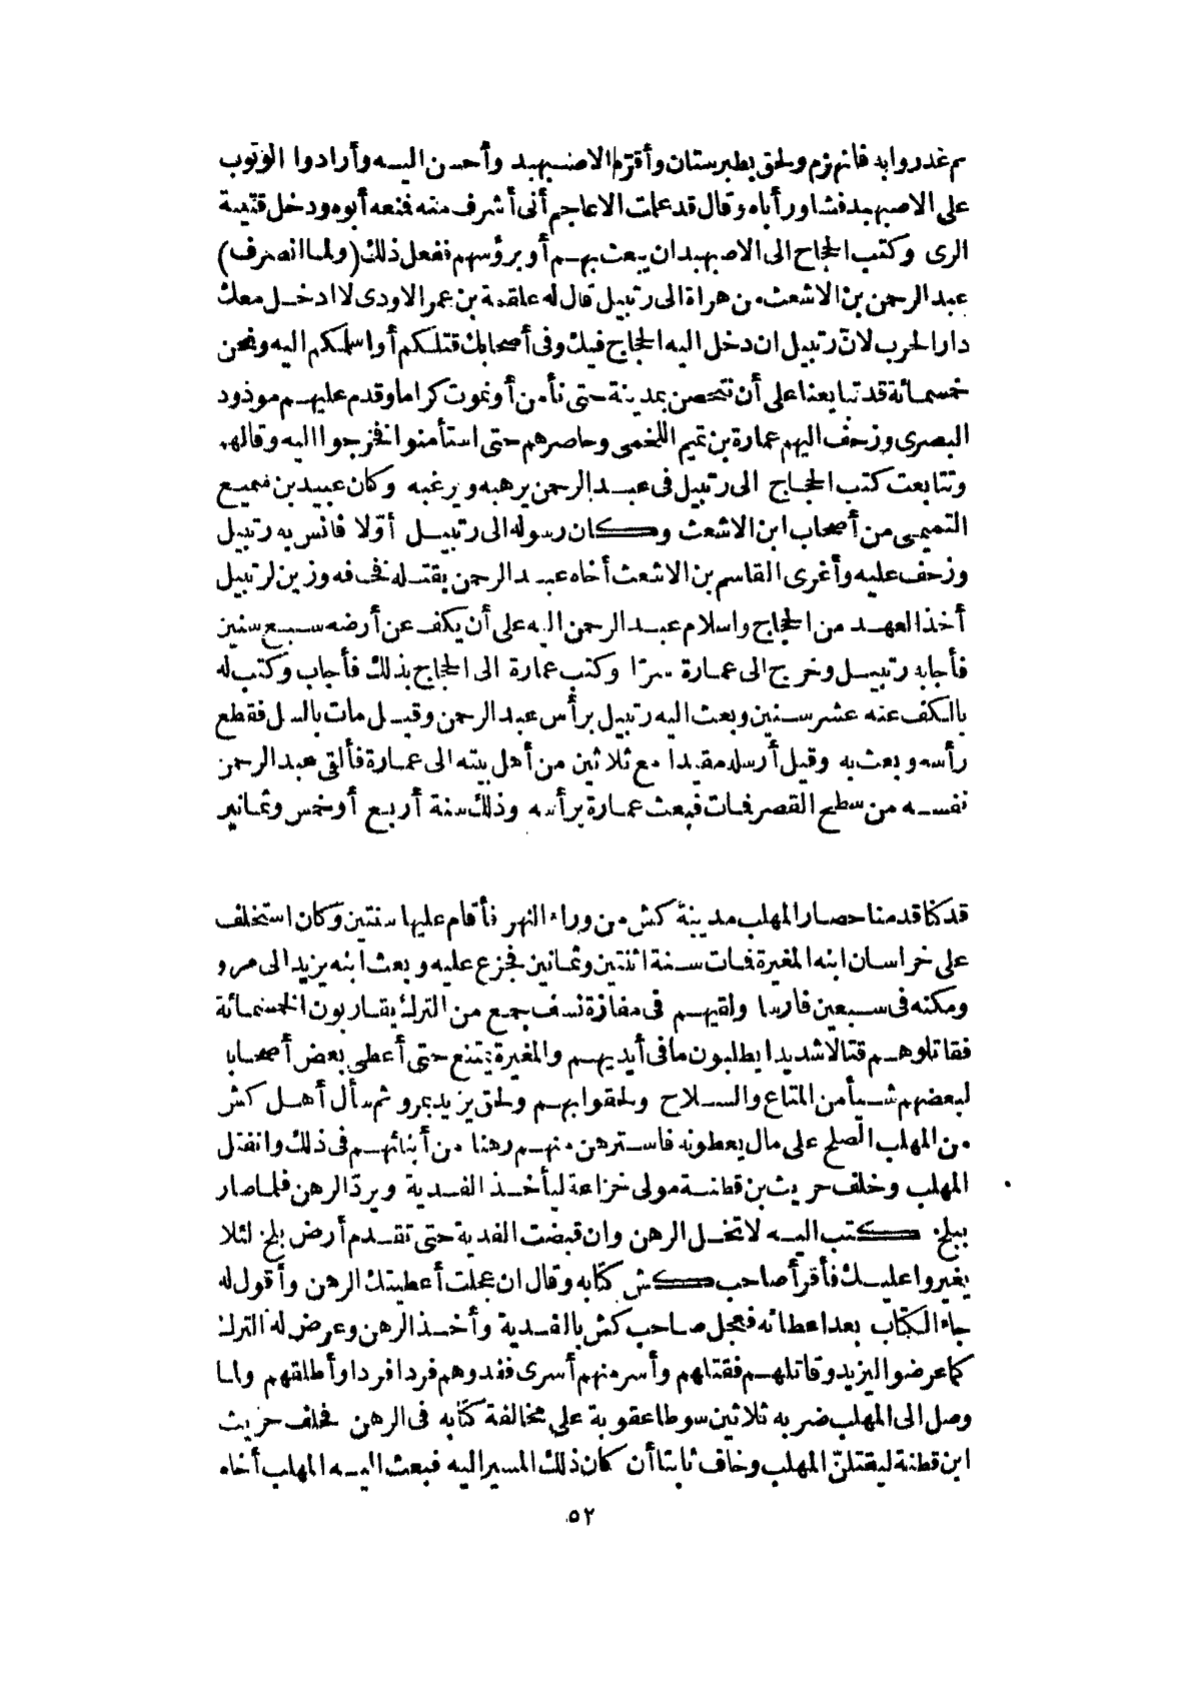 ثم غدروا به فانهزم ولحق بطبرستان وأقره الاصبهبد وأحسن اليه وأرادوا الوثوب
على الاصبهبد فشاور أباه وقال قد علمت الاعاجم أنى أشرف منه فمنعه أبوه ودخل قتيبة
الرى وكتب الحجاج الى الاصبهبد ان يبعث بهم أو برؤسهم ففعل ذلك (ولما انصرف)
عبد الرحمن بن الاشعث من هراة الى رتبيل قال له علقمة بن عمر الاودى لا ادخل معك
دار الحرب لان رتبيل ان دخل اليه الحجاج فيك وفى أصحابك قتلكم أو اسلمكم اليه ونحن
خمسمائة قد تبايعنا على أن نتحصن بمدينة حتى نأمن أو نموت كراما وقدم عليهم موذود
البصرى وزحف اليهم عمارة بن تميم اللخمى وحاصرهم حتى استأمنوا فخرجوا اليه وفى لهم
وتتابعت كتب الحجاج الى رتبيل فى عبد الرحمن يرهبه ويرغبه وكان عبيد بن سميع
التميمى من أصحاب ابن الاشعث وكان رسوله الى رتبيل أوّلا فانس به رتبيل
وزحف عليه وأغرى القاسم بن الاشعث أخاه عبد الرحمن بقتله فخافه وزين لرتبيل
أخذ العهد من الحجاج واسلام عبد الرحمن اليه على أن يكف عن أرضه سبع سنين
فأجابه رتبيل وخرج الى عمارة سرّا وكتب عمارة الى الحجاج بذلك فأجاب وكتب له
بالكف عنه عشر سنين وبعث اليه رتبيل برأس عبد الرحمن وقيل مات بالسل فقطع
رأسه وبعث به وقيل أرسله مقيدا مع ثلاثين من أهل بيته الى عمارة فألقى عبد الرحمن
نفسه من سطح القصر فمات فبعث عمارة برأسه وذلك سنة أربع أو خمس وثمانين
قد كنا قدمنا حصار المهلب مدينة كش من وراء النهر فأقام عليها سنتين وكان استخلف
على خراسان ابنه المغيرة فمات سنة اثنتين وثمانين فجزع عليه وبعث ابنه يزيد الى مرو
ومكنه فى سبعين فارسا ولقيهم فى مفازة نسف جمع من الترك يقاربون الخمسمائة
فقاتلوهم قتالا شديدا يطلبون ما فى أيديهم والمغيرة يمتنع حتى أعطى بعض أصحابا
لبعضهم شيأ من المتاع والسلاح ولحقوا بهم ولحق يزيد بمرو ثم سأل أهل كش
من المهلب الصلح على مال يعطونه فاسترهن منهم رهنا من أبنائهم فى ذلك وانفتل
المهلب وخلف حريث بن قطنة مولى خزاعة ليأخذ الفدية ويردّ الرهن فلما صار
ببلخ كتب اليه لا تخل الرهن وان قبضت الفدية حتى تقدم أرض بلخ لئلا
يغيروا عليك فأقرأ صاحب كش كتابه وقال ان عجلت أعطيتك الرهن وأقول له
جاء الكتاب بعد اعطائه فعجل صاحب كش بالفدية وأخذ الرهن وعرض له الترك
كما عرضوا ليزيد وقاتلهم فقتلهم وأسر منهم أسرى ففدوهم فردا فردا وأطلقهم ولما
وصل الى المهلب ضربه ثلاثين سوطا عقوبة على مخالفة كتابه فى الرهن فحلف حريث
ابن قطنة ليقتلنّ المهلب وخاف ثابتا أن كان ذلك المسير اليه فبعث اليه المهلب أخاه
٥٢